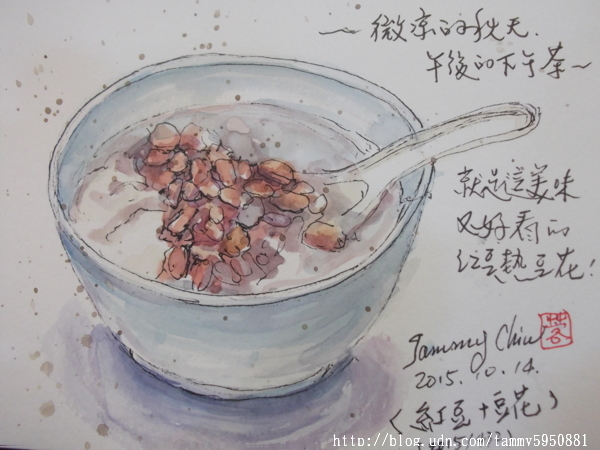 ~ 微涼的秋天.
午後的下午茶~
就是這美味
又好看的
紅豆熱豆花!
Tammy Chiu
2015.10.14.
(紅豆+豆花)
http://blog.udn.com/tammy5950881